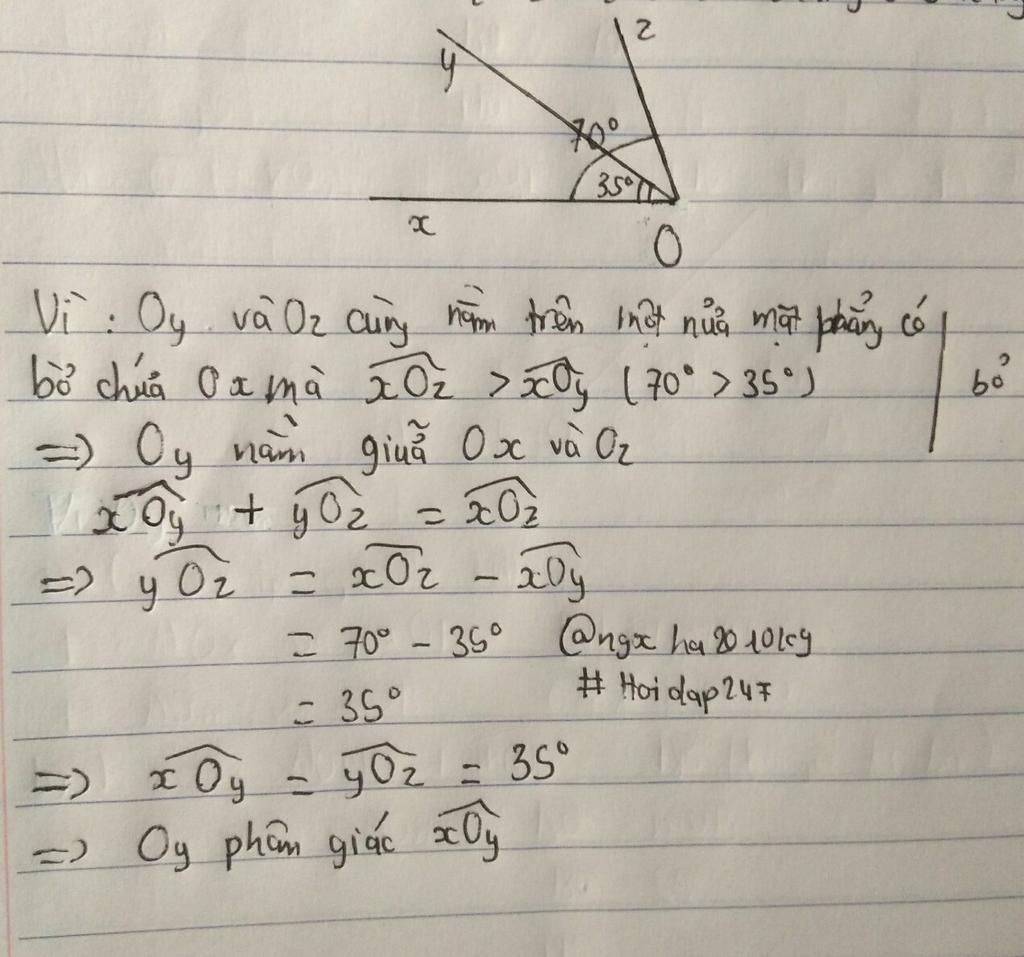 z
y
70°
35°
x
O
Vì : Oy và Oz cùng nằm trên một nửa mặt phẳng có
bờ chứa Ox mà xOz > xOy (70° > 35°)
bỏ
=> Oy nằm giữa Ox và Oz
xOy + yOz = xOz
=> yOz = xOz - xOy
= 70° - 35°
@ngx ha2010lcg
= 35°
# Hoidap247
=> xOy = yOz = 35°
=> Oy phân giác xOy